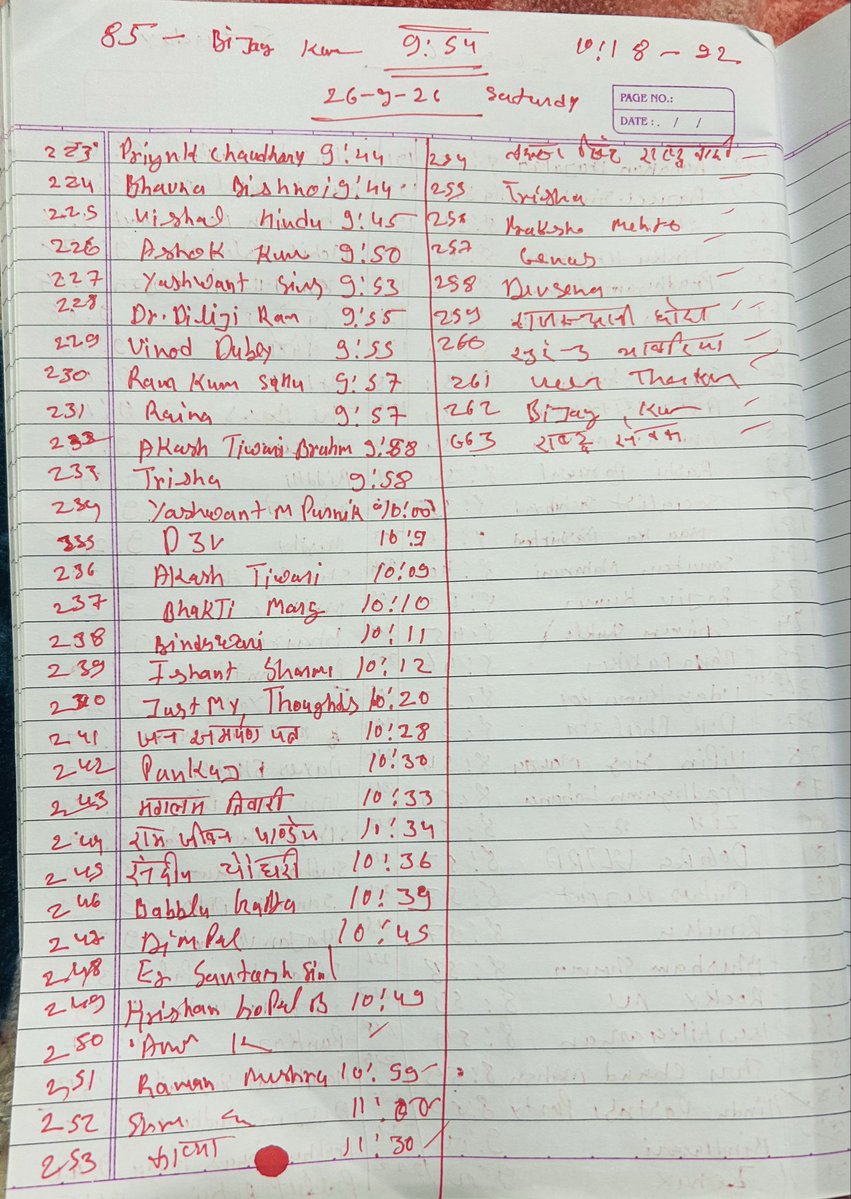 85 - Bijay Kum 9:54 10:18-92
26-9-26 Saturdy
PAGE NO.:
DATE: / /
223 Priynk Chaudhary 9:44
224 Bhavna Bishnoi 9:44
225 Vishal Hindu 9:45
226 Ashok Kum 9:50
227 Yashwant Sing 9:53
228 Dr. Diliji Ram 9:55
229 Vinod Dubey 9:55
230 Ram Kum Sahu 9:57
231 Raina 9:57
232 Akash Tiwari Brahm 9:58
233 Trisha 9:58
234 Yashwant M Purnik 10:00
335 D3V 10:9
236 Akash Tiwari 10:09
237 Bhakti Marg 10:10
238 Bindswari 10:11
239 Ishant Sharm 10:12
240 Just My Thoughts 10:20
241 समर्पण 10:28
242 Pankaj 10:30
243 मंगलम तिवारी 10:33
244 राम जीवन पाण्डेय 10:34
245 चौधरी 10:36
246 Babblu Kalra 10:39
247 Dimpal 10:45
248 Er Santosh
249 Hrishan Gopal B 10:49
250
251 Raman Mishra 10:59
252 11:00
253 काव्या 11:30
254
255 Trisha
256 Praksho Mehto
257 Genus
258 Devsena
259
260
261 Thakur
262 Bijay Kum
663